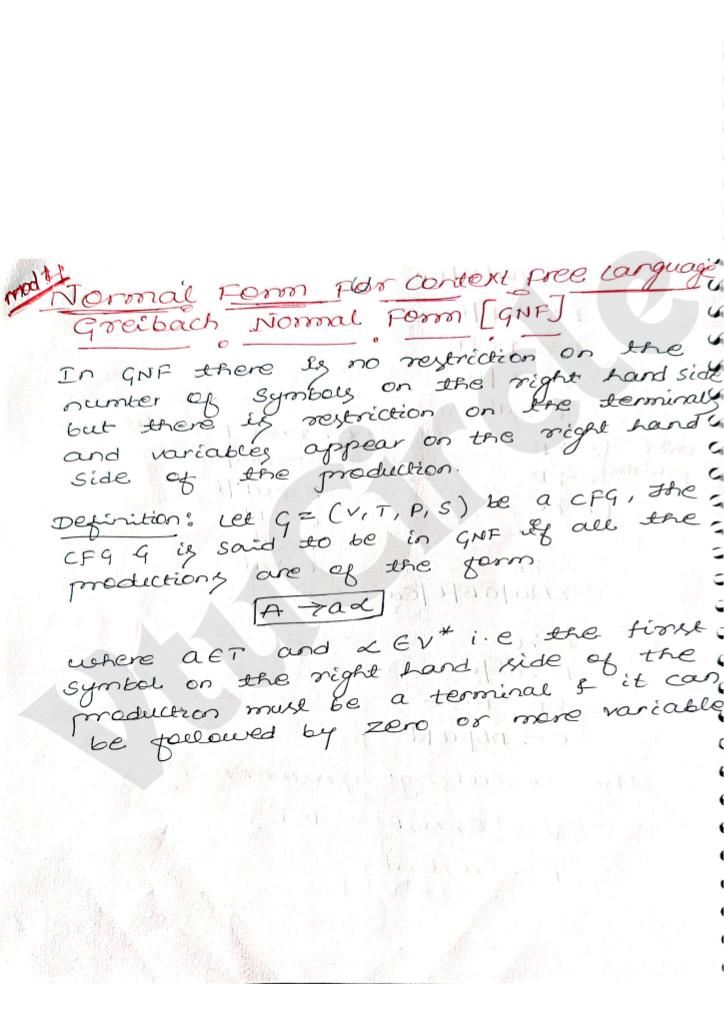 mod #4
Normal Form For Context free Language
Greibach Normal Form [GNF]
In GNF there is no restriction on the
number of symbols on the right hand side
but there is restriction on the terminals
and variables appear on the right hand
side of the production.
Definition: Let G = (V, T, P, S) be a CFG, The
CFG G is said to be in GNF if all the
productions are of the form
A → aα
where a∈T and α∈V* i.e the first
symbol on the right hand side of the
production must be a terminal & it can
be followed by zero or more variable
VtuCircle